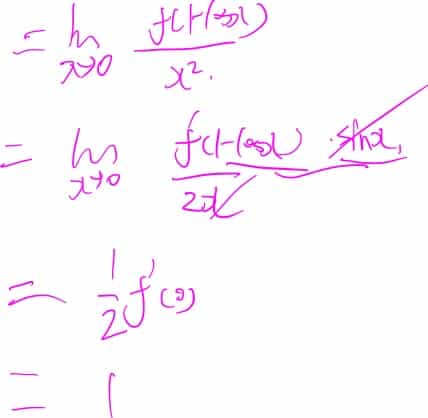 = lim x→0 f(1-cosx) / x².
= lim x→0 f'(1-cosx) · sinx, / 2x
= 1/2 f'(0)
= 1